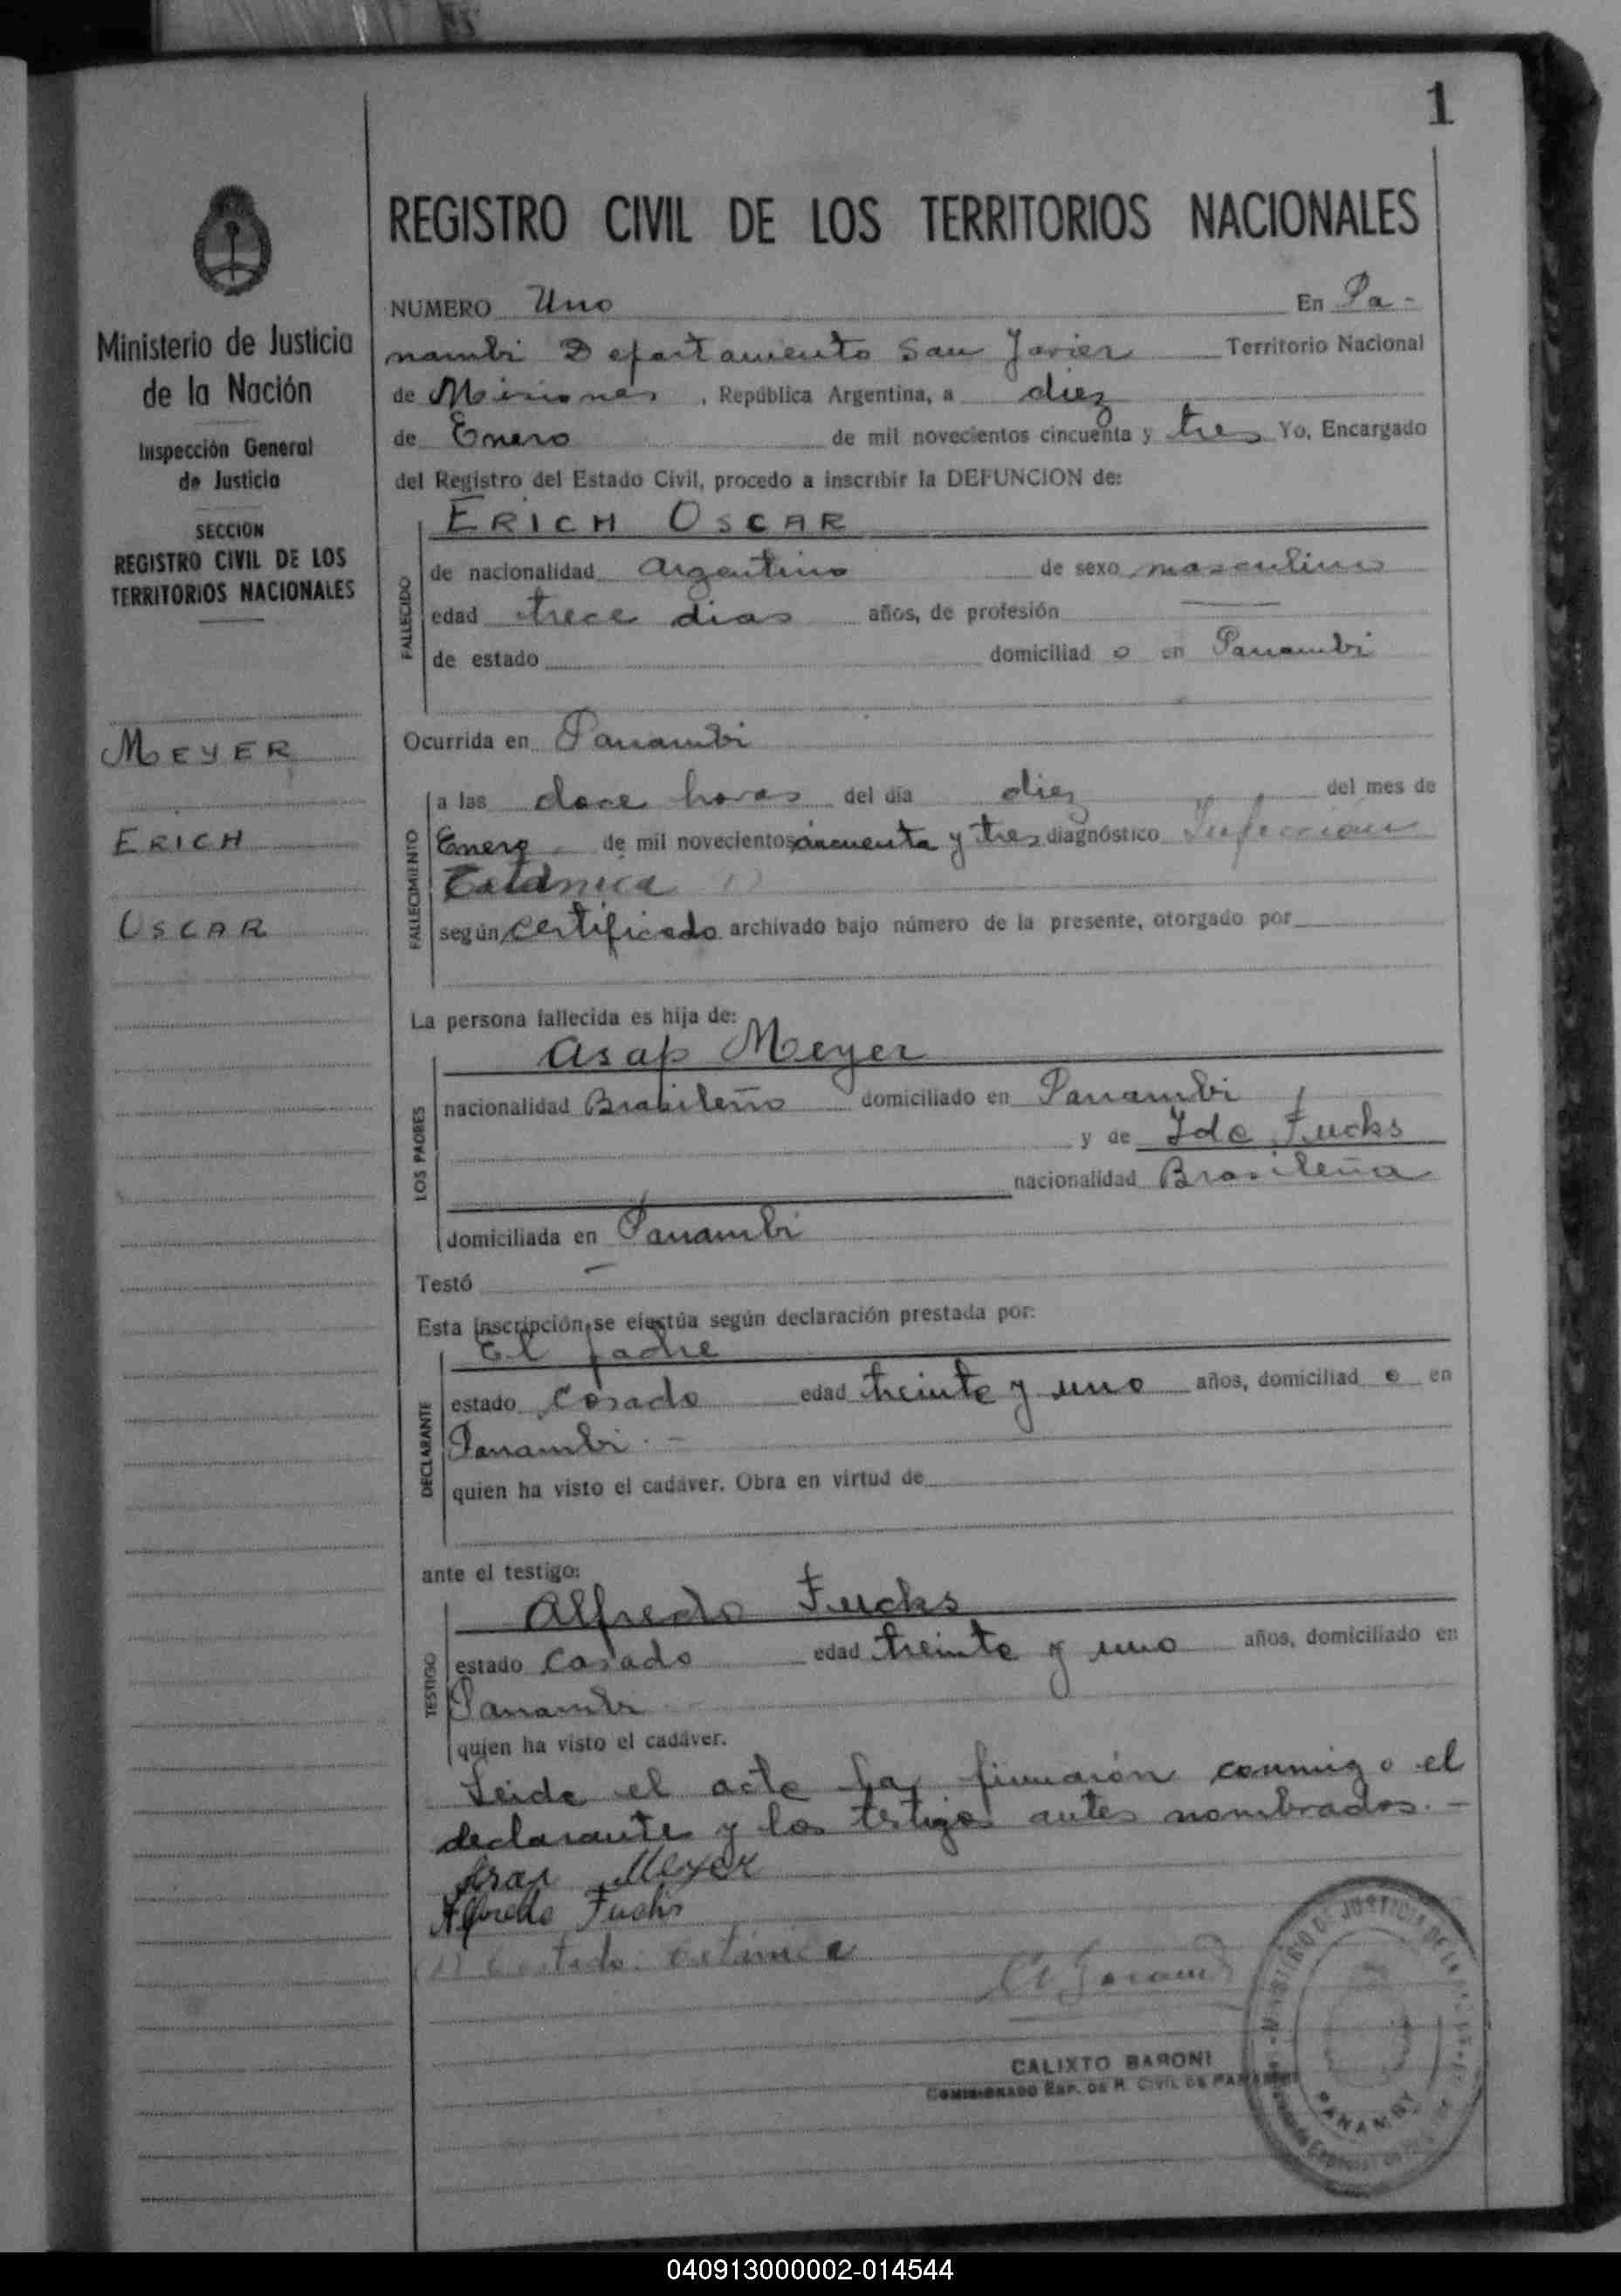 1
Ministerio de Justicia
de la Nación
Inspección General
de Justicia
SECCION
REGISTRO CIVIL DE LOS
TERRITORIOS NACIONALES
MEYER
ERICH
OSCAR
REGISTRO CIVIL DE LOS TERRITORIOS NACIONALES
NUMERO Uno En Pa-
nambi Departamento San Javier Territorio Nacional
de Misiones, República Argentina, a diez
de Enero de mil novecientos cincuenta y tres Yo, Encargado
del Registro del Estado Civil, procedo a inscribir la DEFUNCION de:
ERICH OSCAR
FALLECIDO
de nacionalidad Argentino de sexo masculino
edad trece dias años, de profesión —
de estado domiciliad o en Panambi
Ocurrida en Panambi
FALLECIMIENTO
a las doce horas del día diez del mes de
Enero de mil novecientos cincuenta y tres diagnóstico Infeccion
Tetánica 1)
según certificado archivado bajo número de la presente, otorgado por
La persona fallecida es hija de:
LOS PADRES
Asap Meyer
nacionalidad Brasileño domiciliado en Panambi
y de Ida Fucks
nacionalidad Brasileña
domiciliada en Panambi
Testó —
Esta inscripción se efectúa según declaración prestada por:
DECLARANTE
El padre
estado Casado edad treinta y uno años, domiciliad o en
Panambi.-
quien ha visto el cadáver. Obra en virtud de
ante el testigo:
TESTIGO
Alfredo Fucks
estado Casado edad treinta y uno años, domiciliado en
Panambi
quien ha visto el cadáver.
Leida el acta la firmarón conmigo el
declarante y los testigos antes nombrados.-
Meyer
Alfredo Fuchs
tetánica
CALIXTO BARONI
COMISIONADO ESP. DE R. CIVIL DE PANAMBI
MINISTERIO DE JUSTICIA DE LA
PANAMBY
040913000002-014544